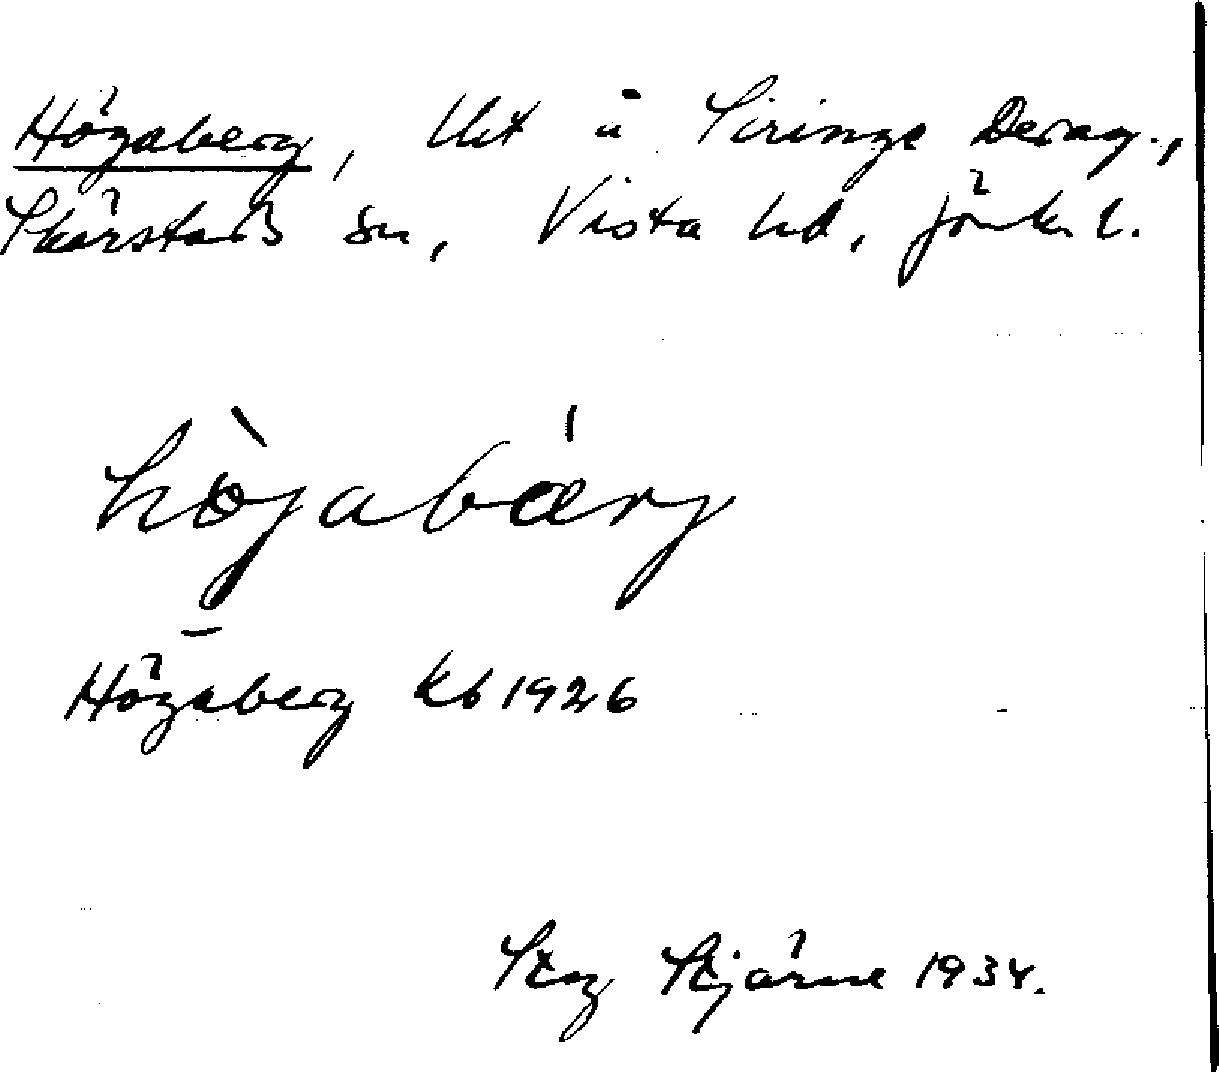 Högaberg, lht å Siringe Derag.,
Skärstads sn, Vista hd, Jönk. l.
hò̀jabær̍j
Högaberg kb 1926
Stig Stjärne 1934.